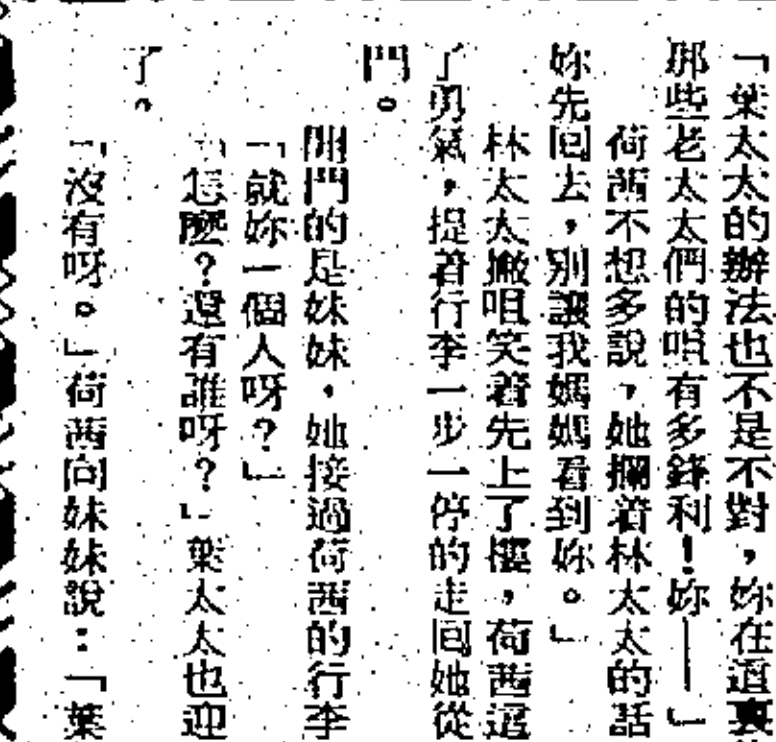 「葉太太的辦法也不是不對，妳在這裏
那些老太太們的咀有多鋒利！妳——」
荷茜不想多說，她攔着林太太的話
妳先回去，別讓我媽媽看到妳。」
林太太撇咀笑着先上了樓，荷茜這
了勇氣，提着行李一步一停的走回她從
門。
開門的是妹妹，她接過荷茜的行李
「就妳一個人呀？」
「怎麼？還有誰呀？」葉太太也迎
了。
「沒有呀。」荷茜向妹妹說：「葉